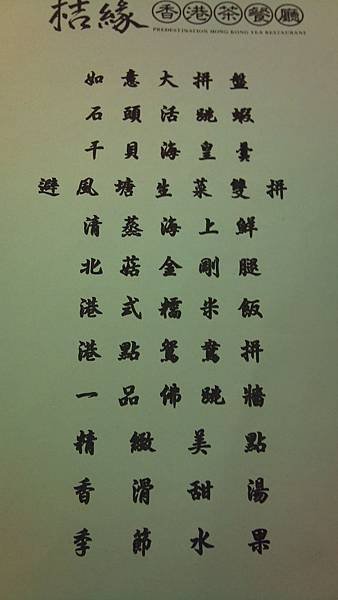 桔緣 香港茶餐廳
PREDESTINATION HONG KONG TEA RESTAURANT
如意大拼盤
石頭活跳蝦
干貝海皇羹
避風塘生菜雙拼
清蒸海上鮮
北菇金剛腿
港式糯米飯
港點鴛鴦拼
一品佛跳牆
精緻美點
香滑甜湯
季節水果